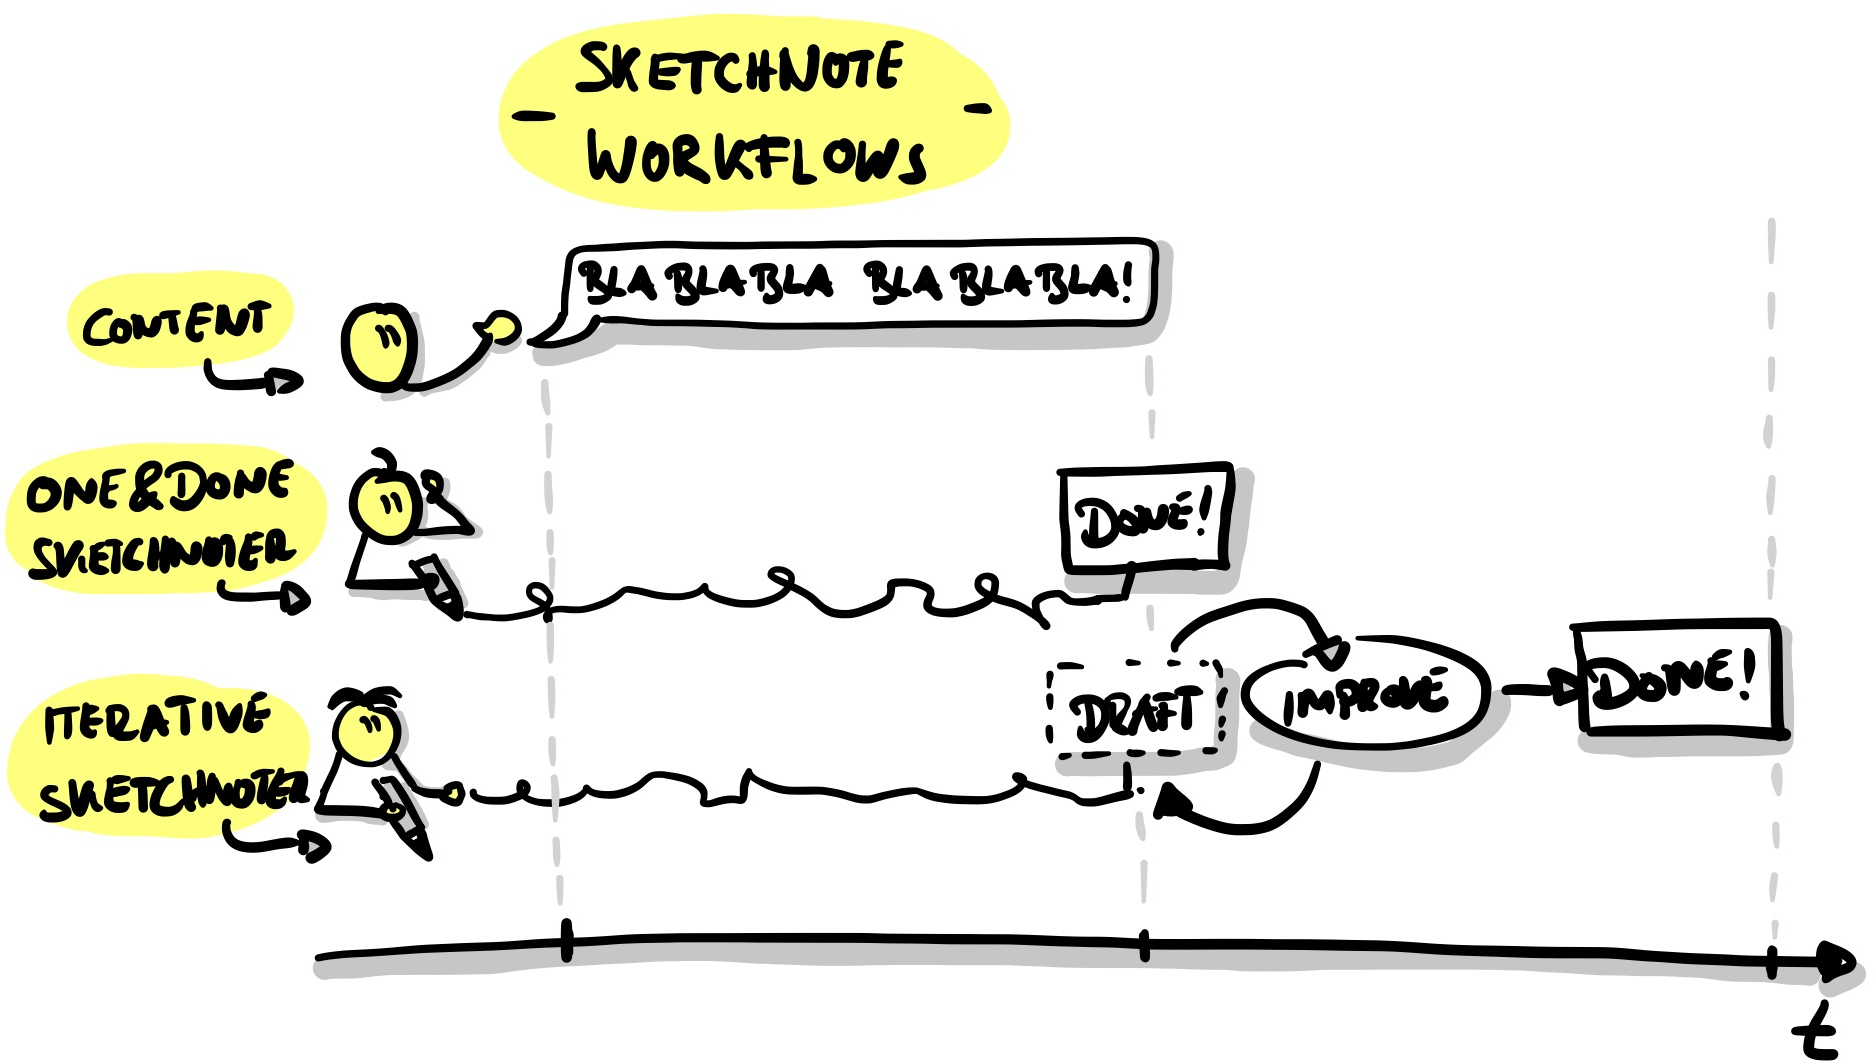 SKETCHNOTE
- WORKFLOWS -
CONTENT
BLA BLABLA BLABLABLA!
ONE&DONE
SKETCHNOTER
DONE!
ITERATIVE
SKETCHNOTER
DRAFT
IMPROVE
DONE!
t